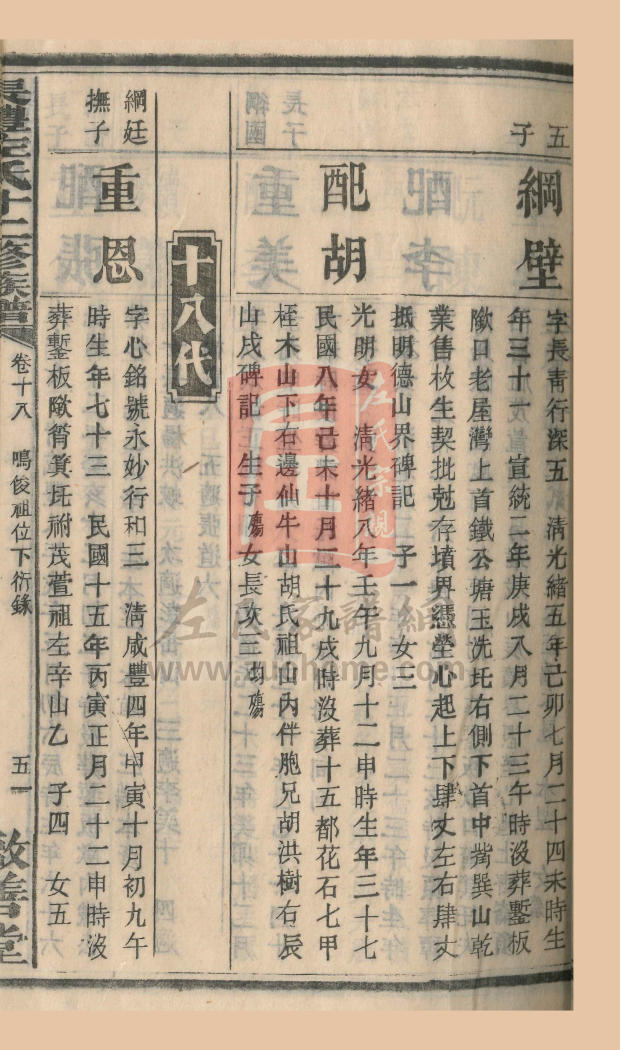 五子
綱壁
字長青行深五 清光緒五年己卯七月二十四未時生
年三十一 宣統二年庚戌八月二十三午時沒葬鏨板
歘口老屋灣上首鐵公塘玉洗圫右側下首中嵜巽山乾
業售枚生契批尅存墳界憑塋心起上下肆丈左右肆丈
抵明德山界碑記 子一 女三
配胡
光明女 清光緒八年壬午九月十二申時生年三十七
民國八年己未十月二十九戌時沒葬十五都花石七甲
桎木山下右邊仙牛山胡氏祖山內伴胞兄胡洪樹右辰
山戌碑記 生子殤女長次三均殤
十八代
綱廷撫子
重恩
字心銘號永妙行和三 清咸豐四年甲寅十月初九午
時生年七十三 民國十五年丙寅正月二十二申時沒
葬鏨板歘筲箕圫祔茂萱祖左辛山乙 子四 女五
左氏十二修族譜
卷十八 鳴俊祖位下衍錄
五一
敦善堂
左氏宗親
左氏家譜網
www.zuohome.com